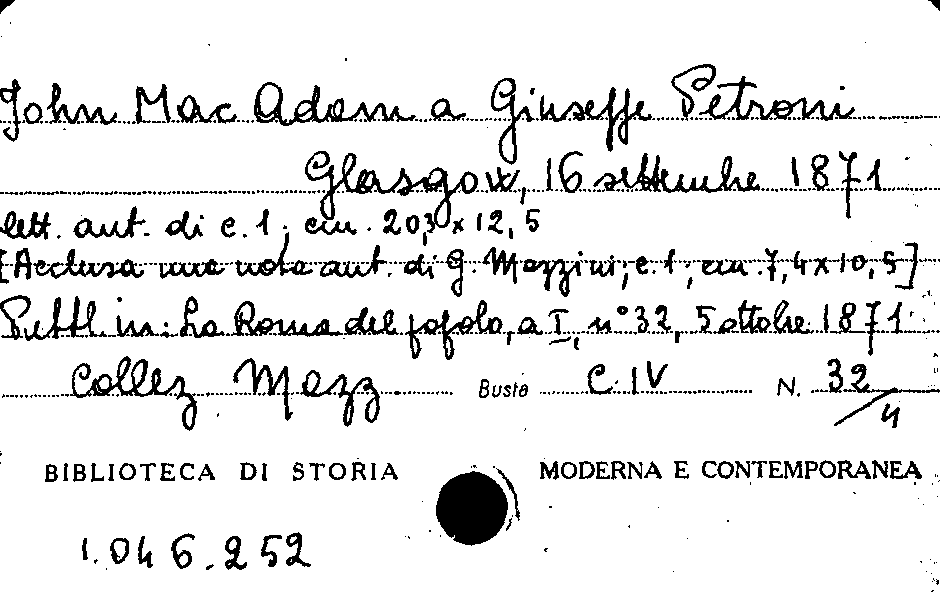 John Mac Adam a Giuseppe Petroni
Glasgow, 16 settembre 1871
lett. aut. di c. 1; cm. 20,3 x 12,5
[Acclusa una nota aut. di G. Mazzini; c. 1; cm. 7,4 x 10,5]
Pubbl. in: La Roma del popolo, a I, n° 32, 5 ottobre 1871
Collez. Mazz. Busta C. IV N. 32/4
BIBLIOTECA DI STORIA MODERNA E CONTEMPORANEA
1.046.252